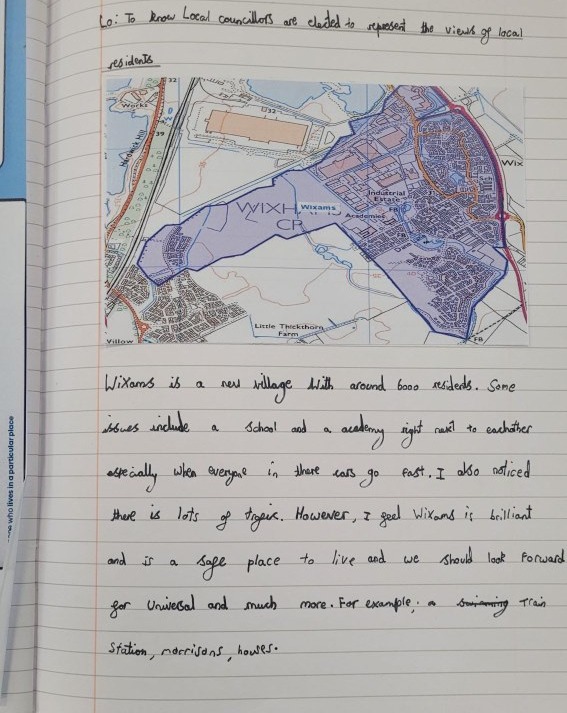 Lo: To know Local councillors are elected to represent the views of local
residents
32
Works
39
32
Wix
Industrial
Estate
WIXH MS
Wixams
Academies
CP
Little Thickthorn
Farm
Willow
FB
Wixams is a new village with around 6000 residents. Some
issues include a school and a academy right next to eachother
especially when everyone in there cars go fast. I also noticed
there is lots of
However, I feel Wixams is brilliant
and is a safe place to live and we should look forward
for Universal and much more. For example; a swimming Train
Station, morrisons, houses.
who lives in a particular place